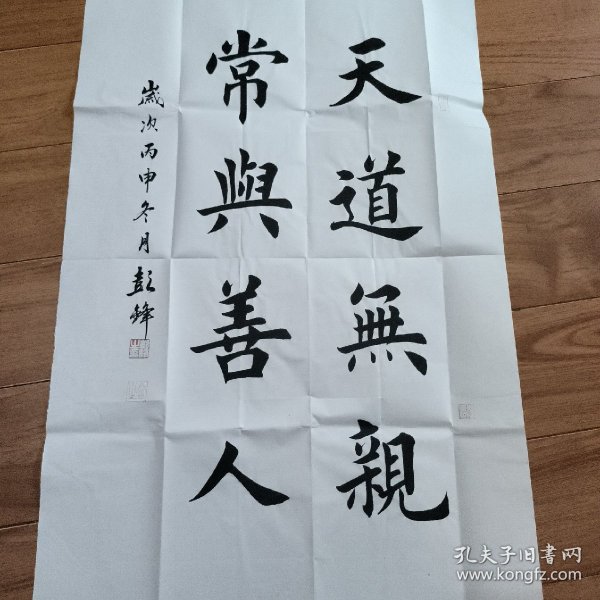 天道無親
常與善人
歲次丙申冬月彭鋒
孔夫子旧书网
www.kongfz.com